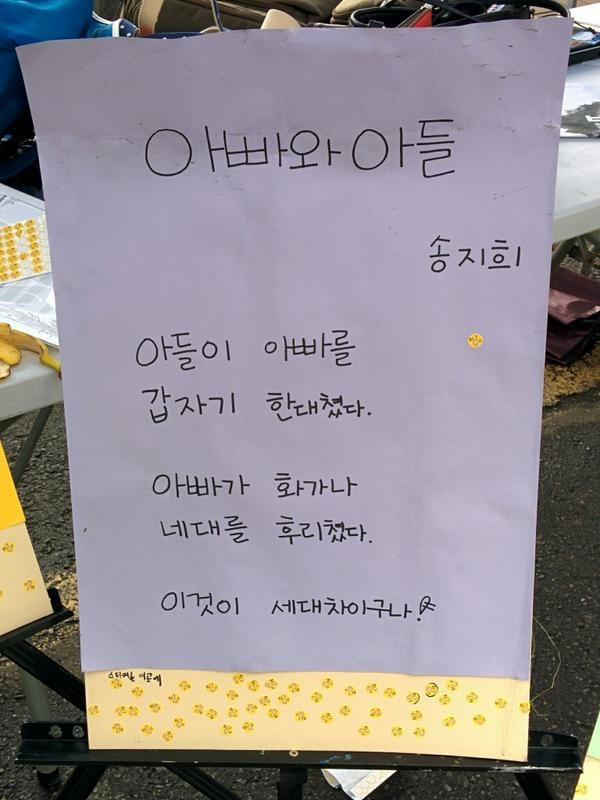 아빠와 아들
송지희
아들이 아빠를
갑자기 한대쳤다.
아빠가 화가나
네대를 후리쳤다.
이것이 세대차이구나!
스티커는 이곳에